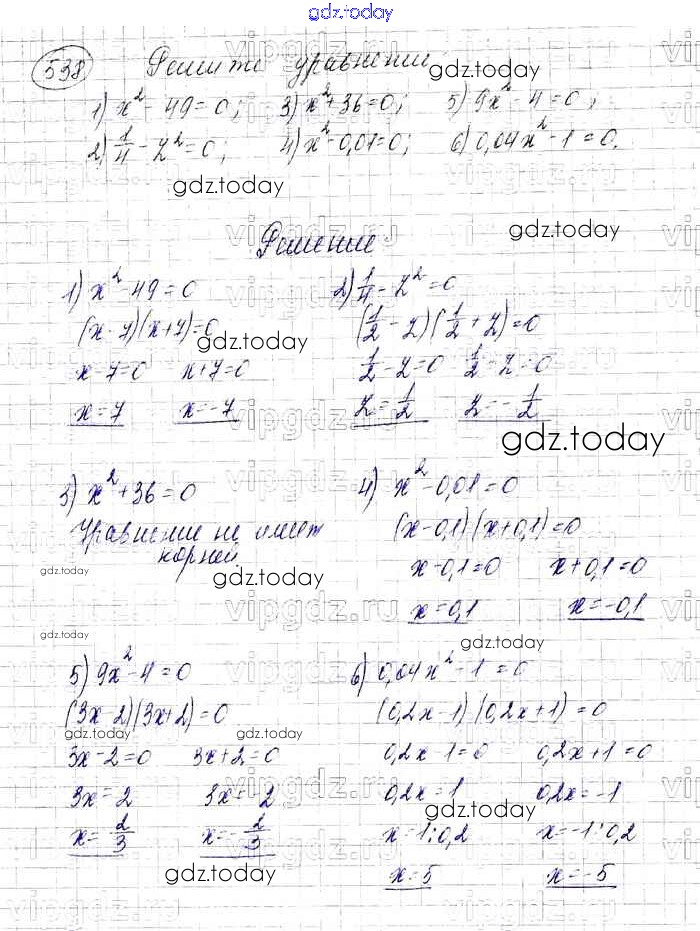 gdz.today
gdz.today
538 Решите уравнения:
gdz.today
1) x² - 49 = 0; 3) x² + 36 = 0; 5) 9x² - 4 = 0;
2) 1/4 - z² = 0; 4) x² - 0,01 = 0; 6) 0,04x² - 1 = 0.
vipgdz.ru
gdz.today
gdz.today
Решение
1) x² - 49 = 0
(x - 7)(x + 7) = 0
gdz.today
x - 7 = 0 x + 7 = 0
x = 7 x = -7
2) 1/4 - z² = 0
(1/2 - z)(1/2 + z) = 0
1/2 - z = 0 1/2 - z = 0
z = 1/2 z = - 1/2
vipgdz.ru
gdz.today
3) x² + 36 = 0
Уравнение не имеет
корней.
gdz.today
gdz.today
4) x² - 0,01 = 0
(x - 0,1)(x + 0,1) = 0
x - 0,1 = 0 x + 0,1 = 0
x = 0,1 x = -0,1
vipgdz.ru
gdz.today
gdz.today
5) 9x² - 4 = 0
(3x - 2)(3x + 2) = 0
gdz.today
3x - 2 = 0 3x + 2 = 0
3x = 2 3x = -2
x = 2/3 x = - 2/3
gdz.today
6) 0,04x² - 1 = 0
(0,2x - 1)(0,2x + 1) = 0
0,2x - 1 = 0 0,2x + 1 = 0
0,2x = 1 0,2x = -1
gdz.today
x = 1 : 0,2 x = -1 : 0,2
x = 5 x = -5
vipgdz.ru